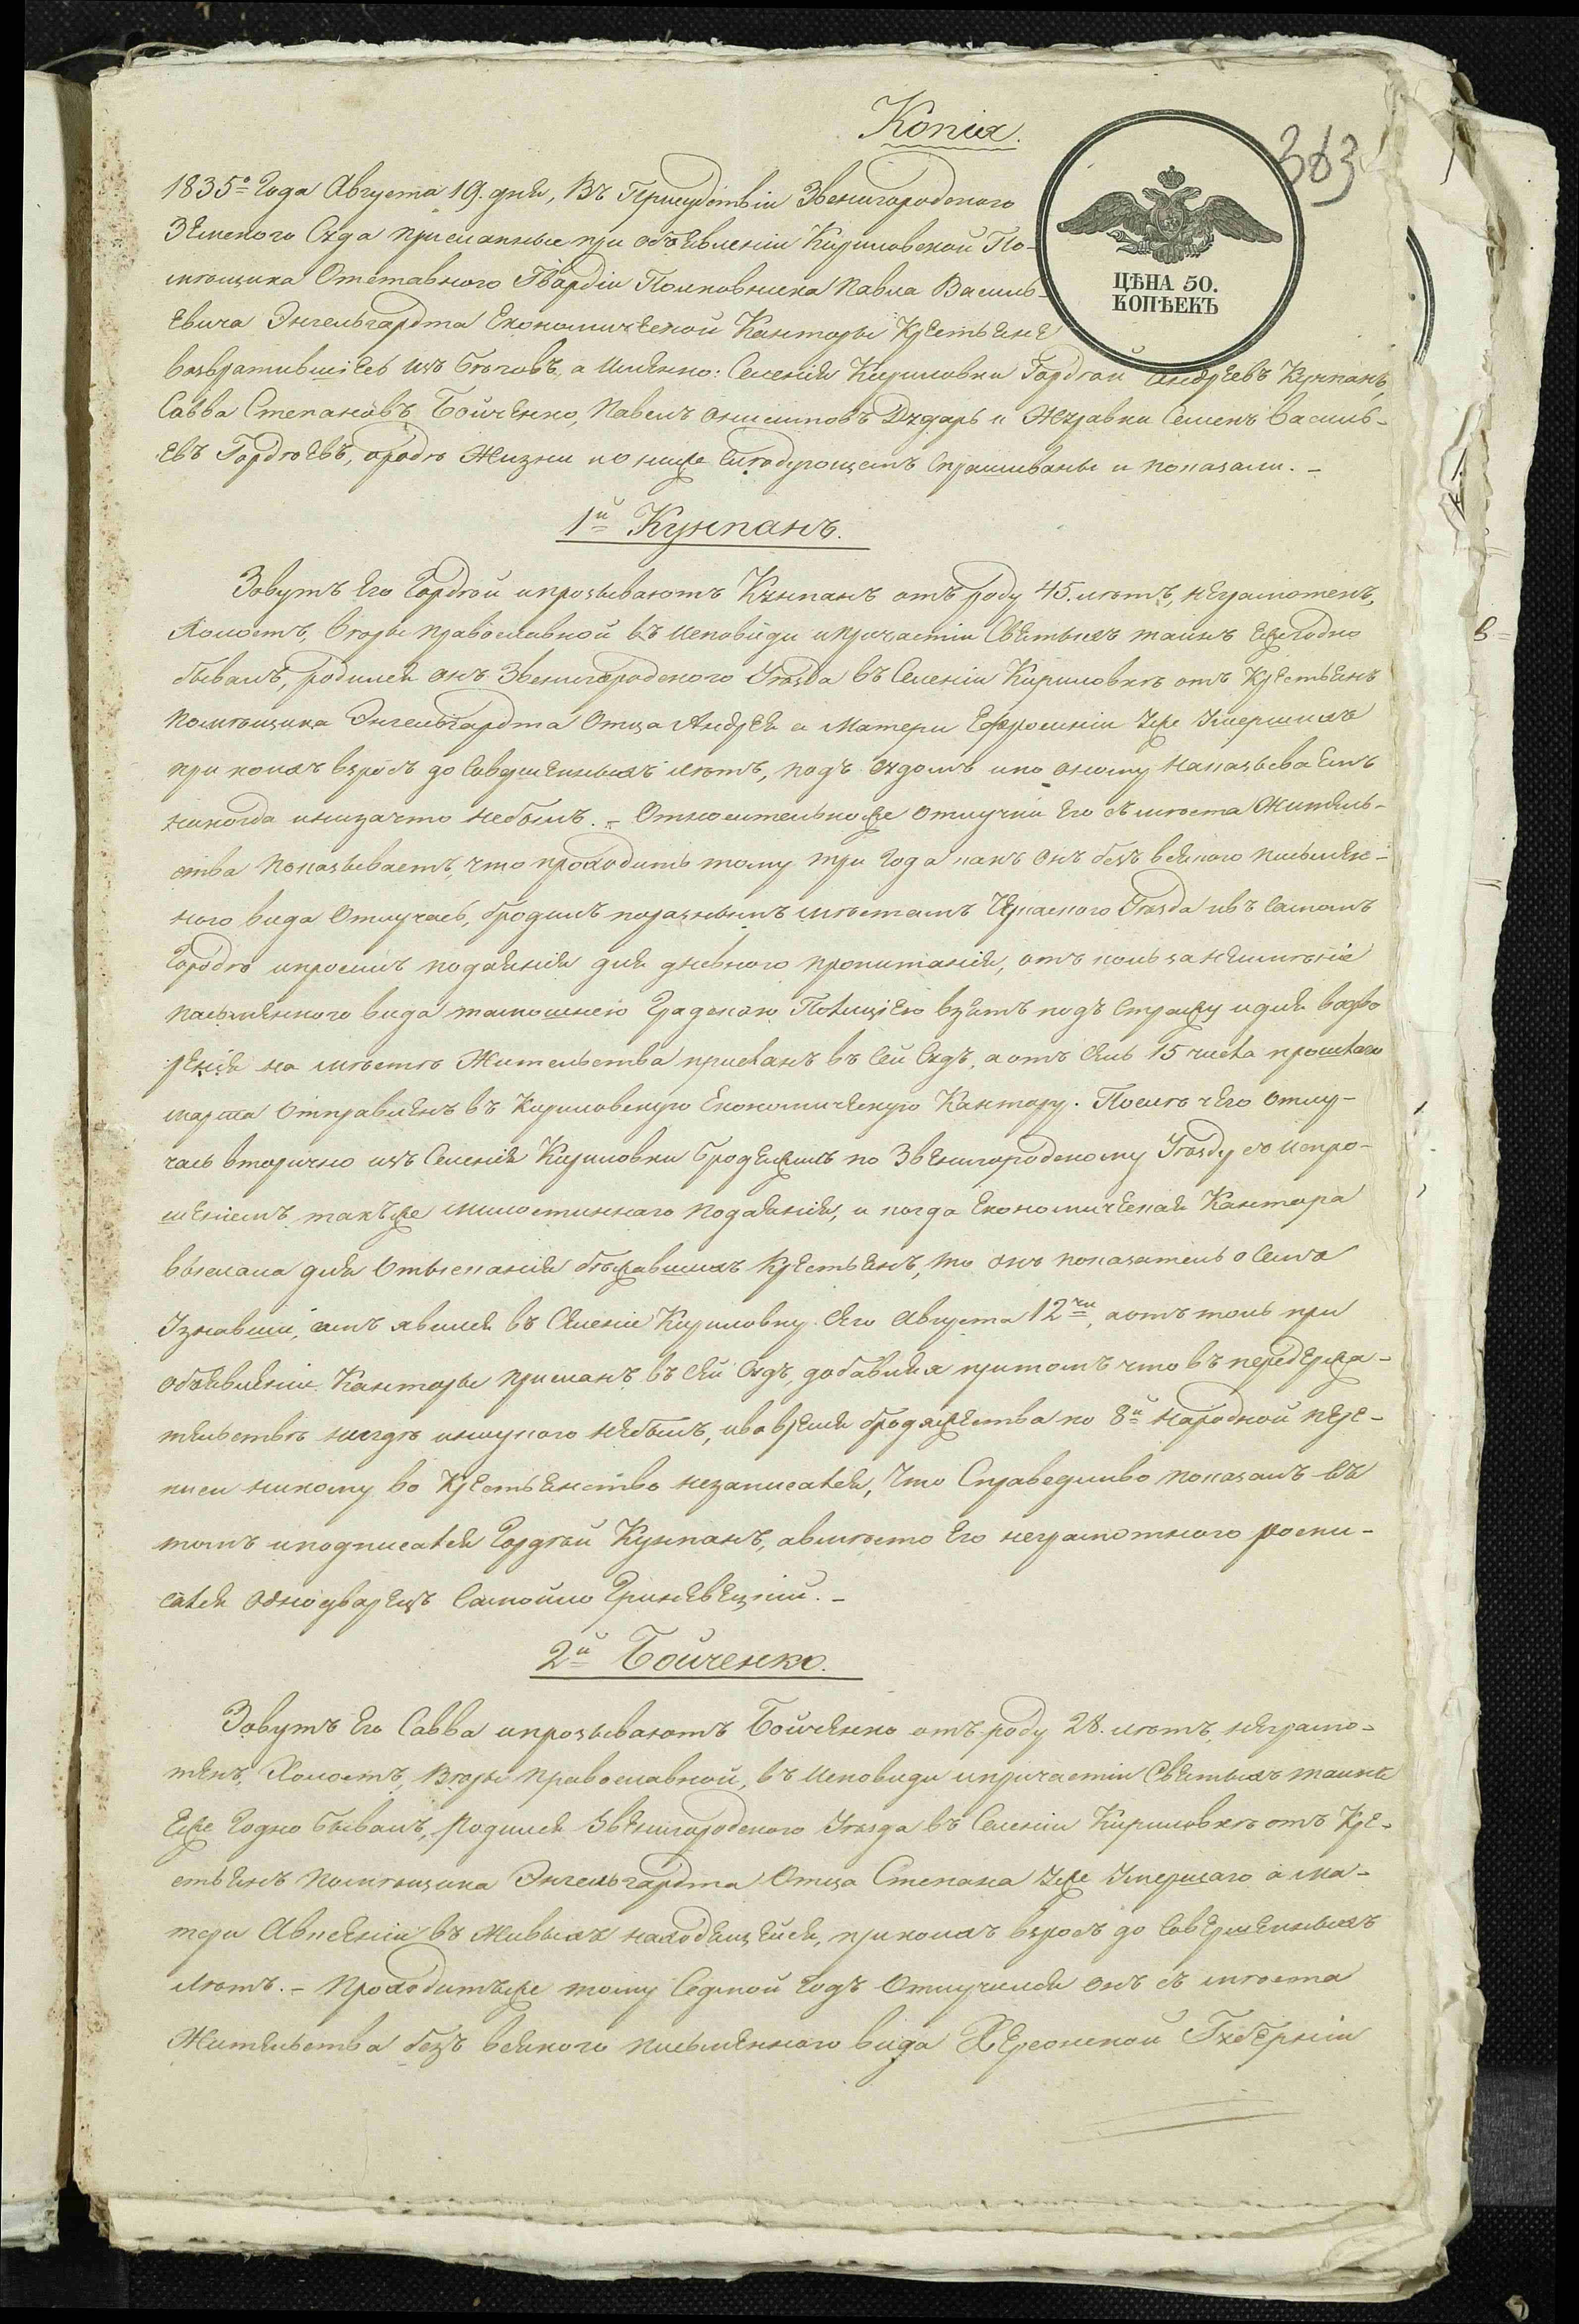 Копія.
363
ЦѢНА 50.
КОПѢЕКЪ
1835го Года Августа 19. дня, Въ Присудствіи Звенигородского
Земского Суда присланные при объявленіи Кириловской По-
мѣщика Отставного Гвардіи Полковника Павла Василь-
евича Энгельгардта Економической Канторы Крестьяне
возвратившіесь изъ бѣговъ, а именно: Селенія Кириловки Гордѣй Андреевъ Кунпанъ,
Савва Степановъ Бойченко, Павелъ Онисимовъ Дударь и Журавки Семенъ Василь-
евъ Гордѣевъ, ородѣ Жизни и о ниже слѣдующемъ Спрашиваны и показали. -
1й Кунпанъ.
Зовутъ Его Гордѣй ипрозываютъ Кунпанъ отъ роду 45. лѣтъ, неграмотенъ,
Холостъ, вѣры православной въ Исповѣди ипричастіи Святыхъ таинъ Ежегодно
бывалъ, родился онъ Звенигородского Уѣзда въ Селеніи Кириловкѣ отъ Крестьянъ
помѣщика Энгельгардта Отца Андрея и Матери Ефросиніи Уже Умершихъ
при коихъ взросъ до Совершенныхъ лѣтъ, подъ Судомъ ипо оному наказываемъ
никогда инизачто небылъ. - Относительноже отлучки Его съ мѣста Житель-
ства показываетъ, что проходитъ тому три Года какъ Онъ безъ всякого писмен-
ного вида Отлучась, бродилъ поразнымъ мѣстамъ Черкаского Уѣзда ивъ Самомъ
Городѣ ипросилъ подаянія для дневного пропитанія, отъ коль за неимѣніе
письменного вида тамошнею Градскою Полиціею взятъ подъ Стражу идля водво
ренія на мѣстѣ Жительства присланъ въ Сей Судъ, а отъ сель 15 числа прошлаго
марта Отправленъ въ Кириловскую Економическую Кантору. Послѣ чего отлу-
чась вторично изъ Селенія Кириловки бродяжилъ по Звенигородскому Уѣзду со испро-
шеніемъ такъже милостиннаго подаянія, и когда Економическая Кантора
выслала для Отысканія бѣжавшихъ Крестьянъ, то онъ показатель о Семъ
Узнавши, самъ явился въ Селеніе Кириловку Сего Августа 12 чи, а отъ толь при
объявленіи Канторы присланъ въ Сей Судъ, добавляя притомъ что въ передержа-
тельствѣ нигдѣ иниукого небылъ, иво время бродяжества по 8й народной пере-
писи никому во Крестьянство незаписался, Что Справедливо показалъ въ
томъ иподписался Гордѣй Кунпанъ, авмѣсто Его неграмотного роспи-
сался Однодворецъ Самойло Гриневецкій. -
2й Бойченко.
Зовутъ Его Савва ипрозываютъ Бойченко отъ роду 28. лѣтъ, неграмо-
тенъ, Холостъ, Вѣры православной, въ Исповиди ипричастіи Святыхъ таинъ
Еже Годно бывалъ, Родился Звенигородского Уѣзда въ Селеніи Кириловкѣ отъ Кре-
стьянъ помѣщика Энгельгардта Отца Степана Уже Умершаго а ма-
тери Авксеніи въ Живыхъ находящейся, прикоихъ взросъ до Совершенныхъ
лѣтъ. - Проходитъже тому Седмой Годъ Отлучился онъ съ мѣста
Жительства безъ всякого писменнаго вида Херсонской Губерніи